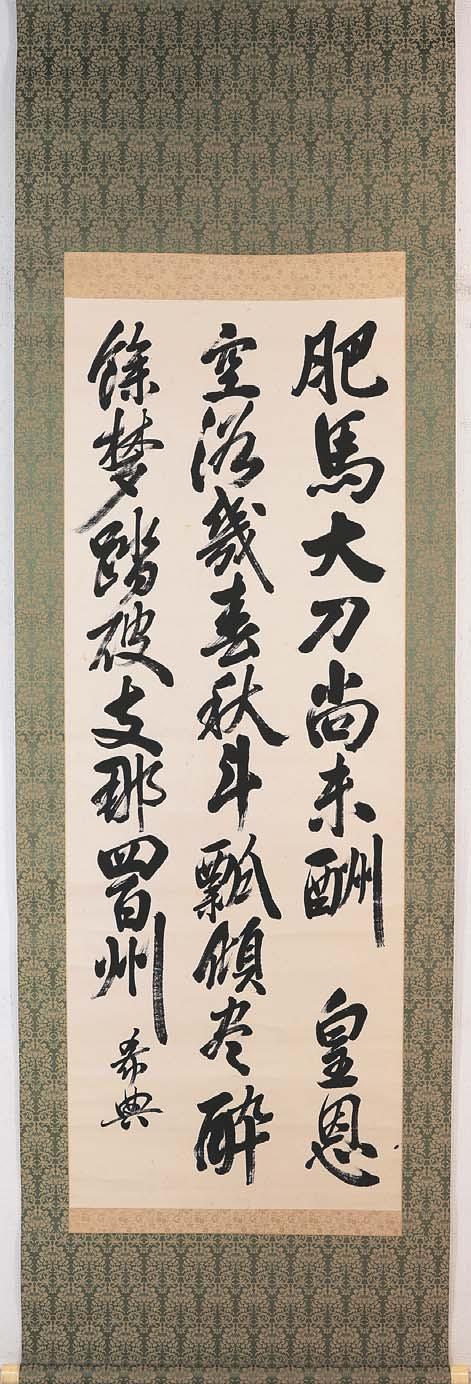 肥馬大刀尚未酬　皇恩
空浴幾春秋斗瓢傾尽酔
餘夢踏破支那四百州
希典